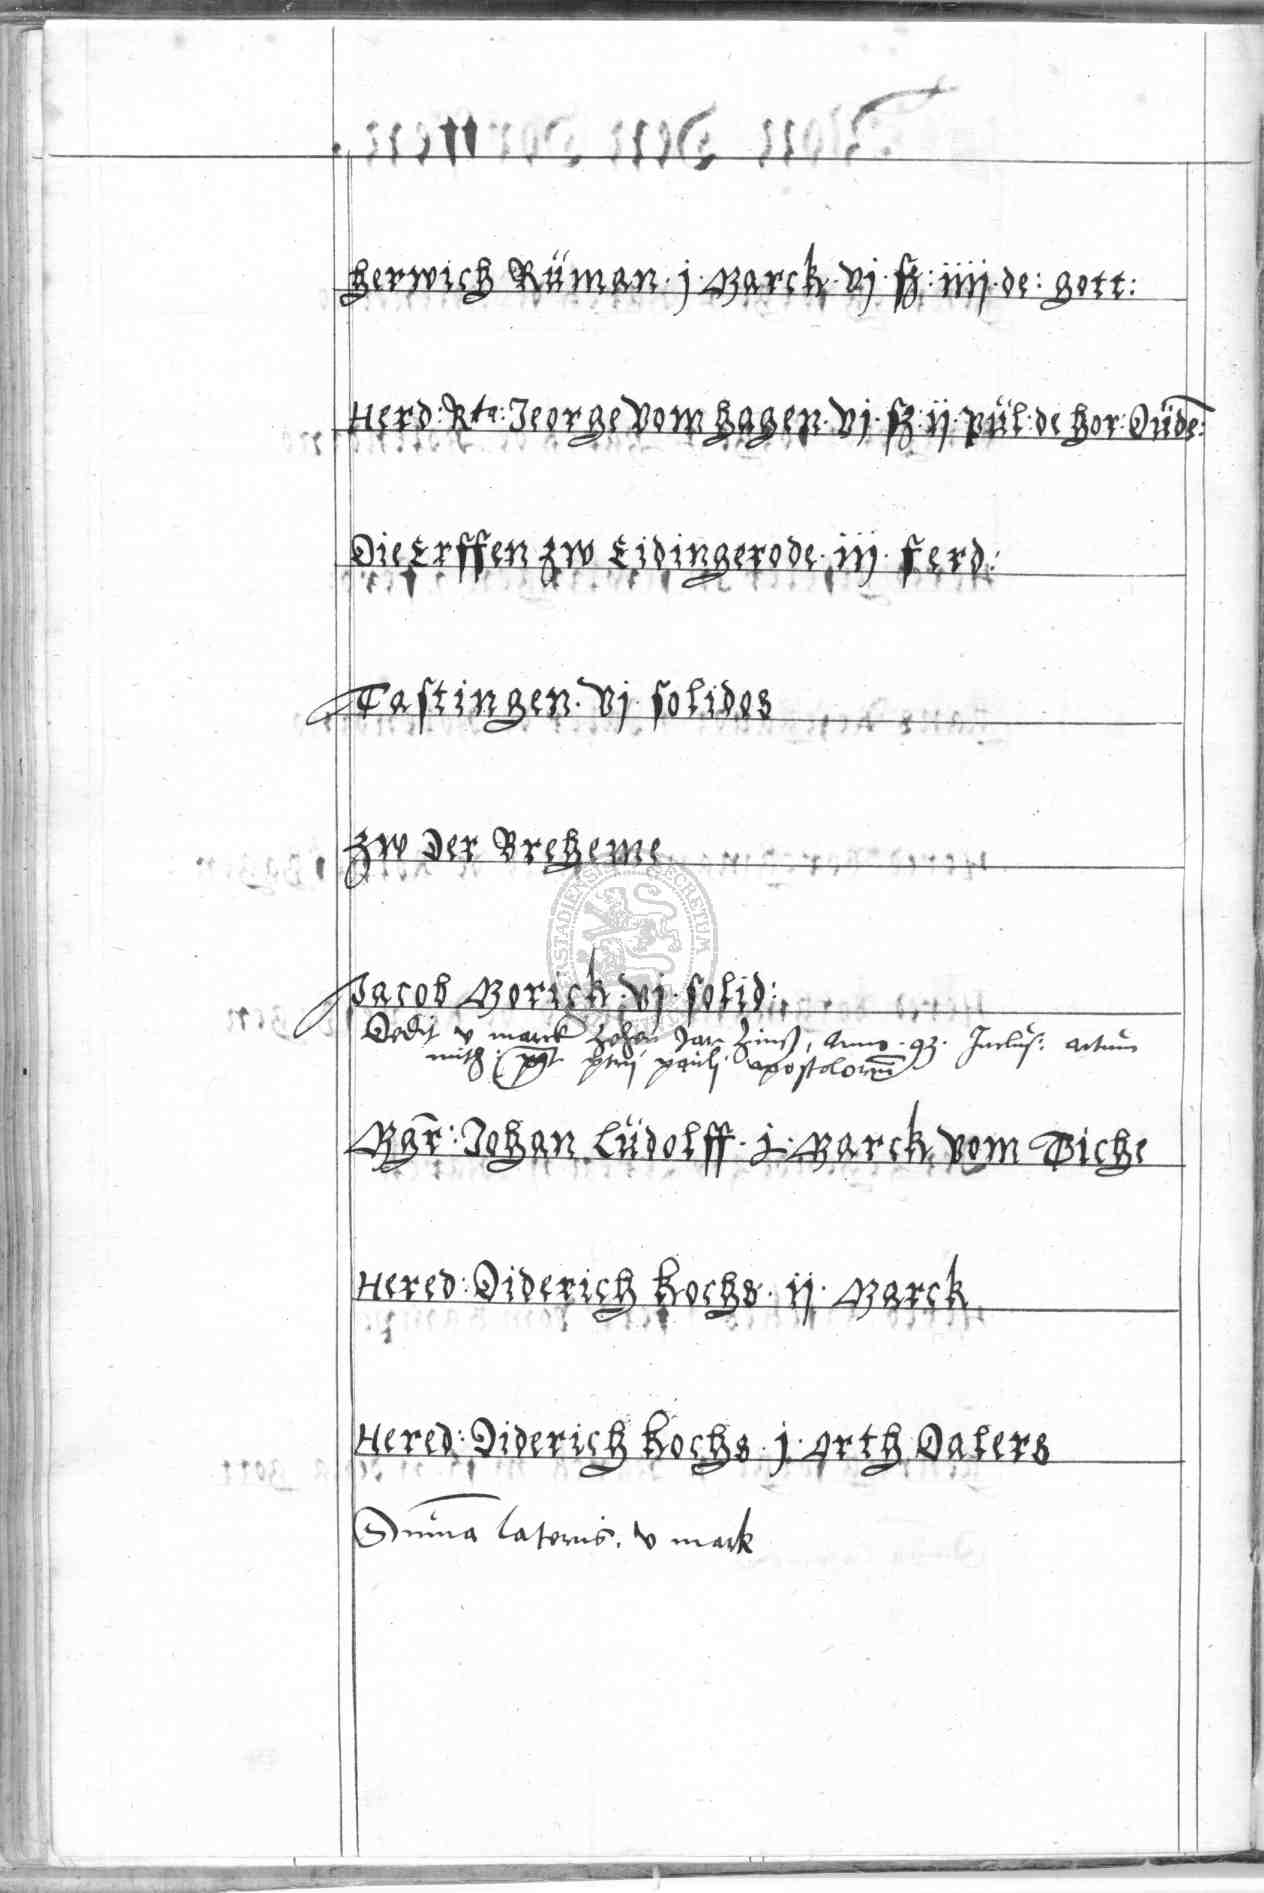 Herwich Rüman · j · Marck · vj · ß : iiij · de : gott :
Herd : Rta : Jeorge vom Hagen · vj · ß · ij · pül · de hor · Düde :
Die Erffen zw Eidingerode · iij · ferd :
Tastingen · vj · solides
Zw Der Breheme
Jacob Morick · vj · solid :
Dedit v marck zehen Jar Zinß, Anno · 93 · Inclus : actum
mith : post petri pauli apostolorum
Mgr : Johan Lüdolff · j · Marck vom Tiche
Hered : Diderich Kochs · ij · Marck
Hered : Diderich Kochs · j · Orth Dalers
Suma lateris . v mark
SECRETUM